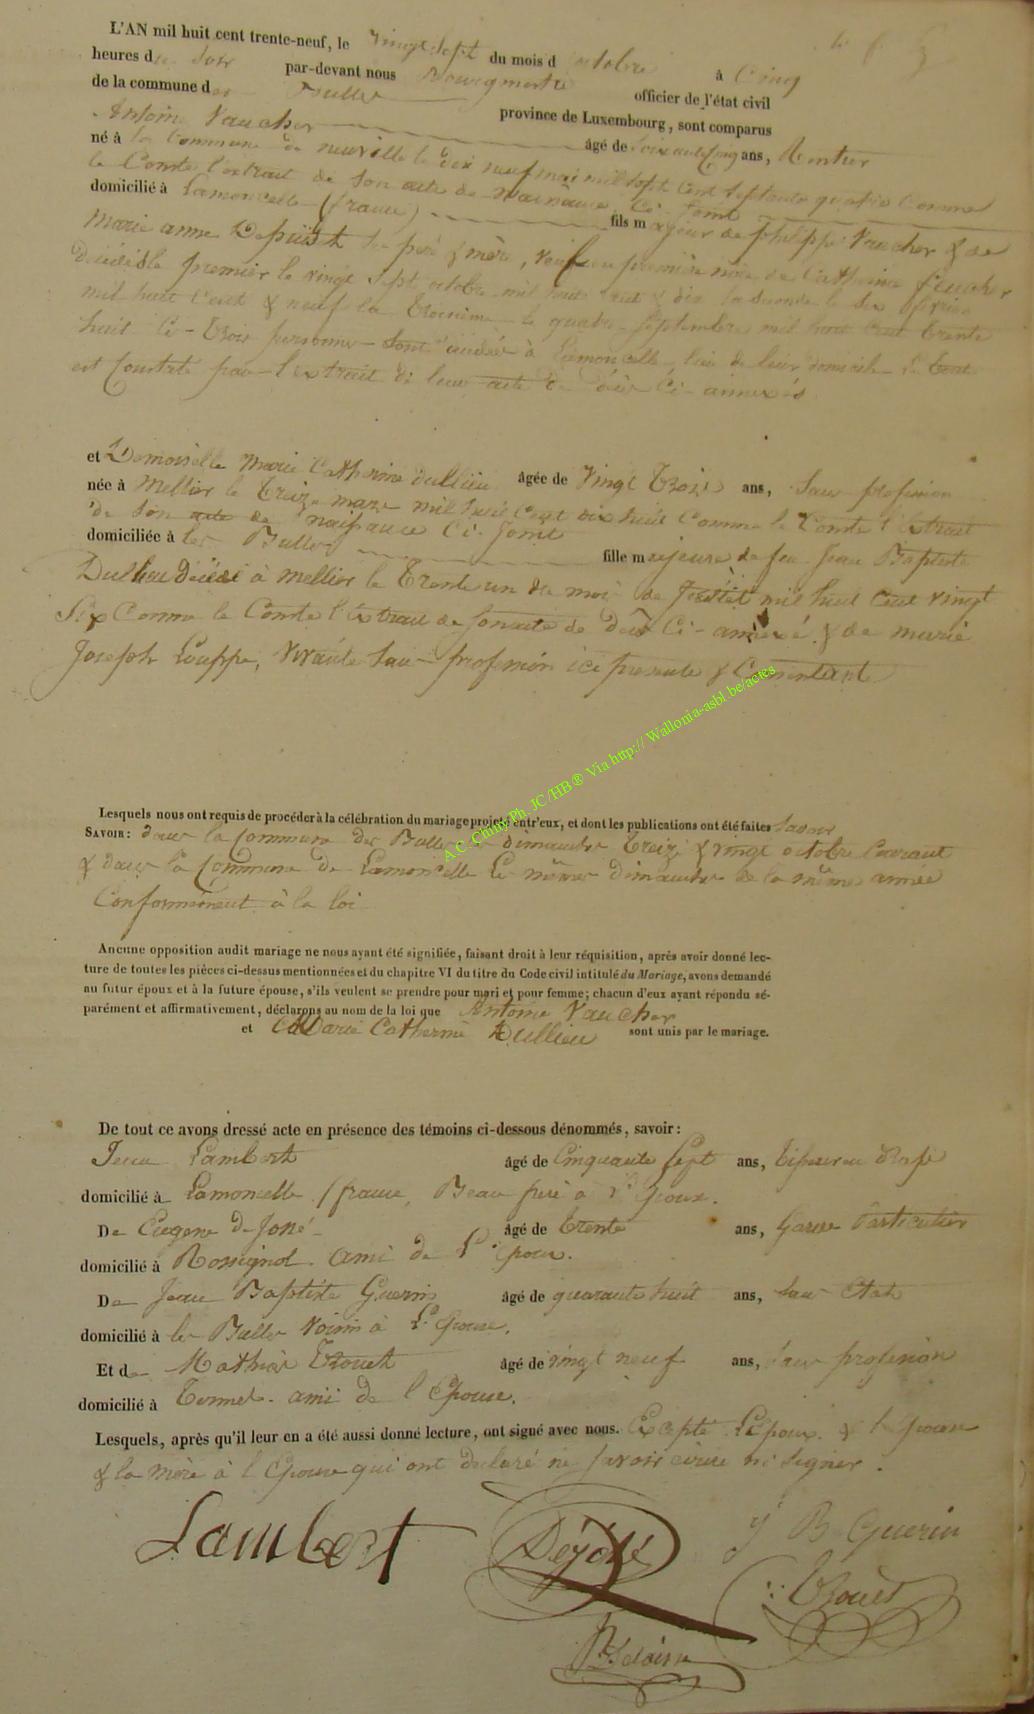 L'AN mil huit cent trente-neuf, le vingt sept du mois d octobre à Cinq
heures du soir par-devant nous Bourgmestre officier de l'état civil
de la commune des Bulles province de Luxembourg, sont comparus
Antoine Vaucher âgé de soixante cinq ans, Rentier
né à la Commune de neuville le dix neuf mai mil sept cent septante quatre Comme
le Conste l'extrait de son acte de naissance Ci-joint
domicilié à Lamoncelle (france) fils majeur de philippe Vaucher & de
Marie anne Depuist ses père & mère, Veuf en première noce de Catherine
décédés le premier le vingt sept octobre mil huit cent & dix la seconde le six février
mil huit Cent & neuf la troisième le quatre septembre mil huit Cent trente
huit les trois personnes sont décédées à Lamoncelle lieu de leur domicile le tout
est Constaté par l'extrait de leur acte de décès Ci-annexés
et Demoiselle Marie Catherine dullieu âgée de Vingt trois ans, Sans profession
née à Mellier le treize mars mil huit Cent dix huit Comme le Conste l'extrait
de son acte de naissance Ci-joint
domiciliée à les Bulles fille majeure de feu Jean Baptiste
Dullieu décédé à mellier le trente un du mois de Juillet mil huit Cent vingt
Six Comme le Conste l'extrait de son acte de décès Ci-annexé & de marie
Joseph Louppe, Vivante sans profession ici présente & Consentant
A.C. Chiny-Ph. JC/HB® Via http:// Wallonia-asbl.be/actes
Lesquels nous ont requis de procéder à la célébration du mariage projeté entr'eux, et dont les publications ont été faites savoir
SAVOIR: dans la Commune des Bulles les dimanches treize & vingt octobre Courant
& dans la Commune de Lamoncelle les mêmes dimanches de la même année
Conformément à la loi
Aucune opposition audit mariage ne nous ayant été signifiée, faisant droit à leur réquisition, après avoir donné lec-
ture de toutes les pièces ci-dessus mentionnées et du chapitre VI du titre du Code civil intitulé du Mariage, avons demandé
au futur époux et à la future épouse, s'ils veulent se prendre pour mari et pour femme; chacun d'eux ayant répondu sé-
parément et affirmativement, déclarons au nom de la loi que Antoine Vaucher
et Marie Catherine Dullieu sont unis par le mariage.
De tout ce avons dressé acte en présence des témoins ci-dessous dénommés, savoir:
Jean Lambert âgé de Cinquante sept ans,
domicilié à Lamoncelle (france, Beau père à l'Epoux.
De Eugene dejoné âgé de trente ans, Garde Particulier
domicilié à Rossignol. ami de L'époux.
De Jean Baptiste Guerin âgé de quarante huit ans, Sans Etat
domicilié à les Bulles Voisin à L'Epouse.
Et de Mathias Trouet âgé de vingt neuf ans, sans profession
domicilié à Termes. ami de l'Epouse.
Lesquels, après qu'il leur en a été aussi donné lecture, ont signé avec nous. Excepté L'Epoux. & l'Epouse
& la mère à l'Epouse qui ont declaré ne savoir écrire ni signer.
Lambert Dejoné J B Guerin
Trouet